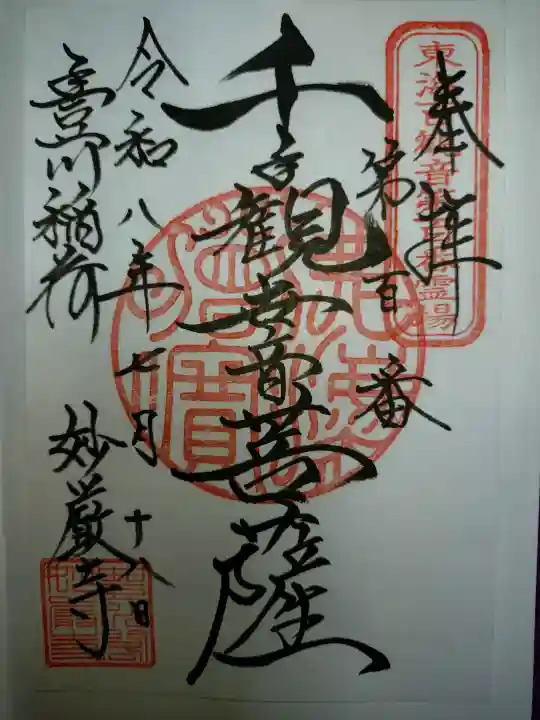 東海百観音霊場
奉拝
第百番
千手観世音菩薩
令和八年七月十八日
豊川稲荷
妙厳寺